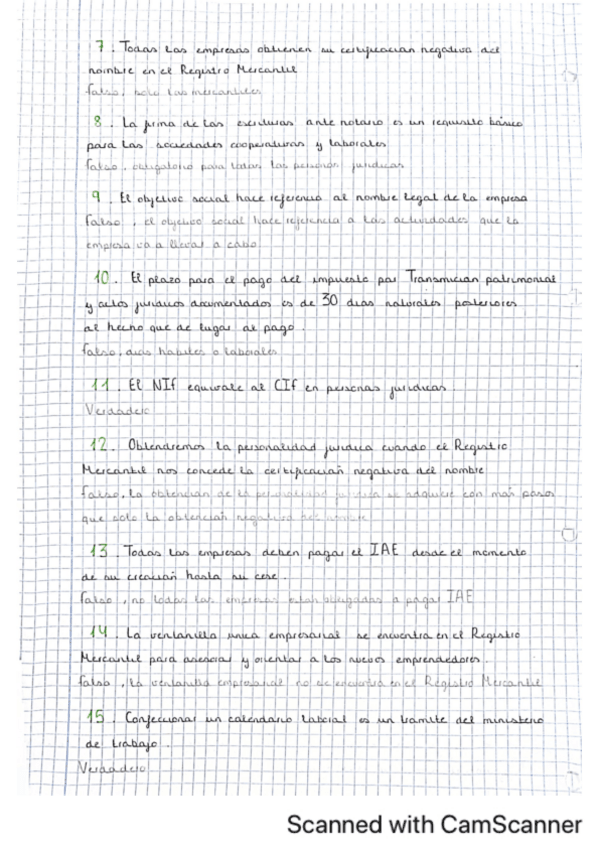 7. Todas las empresas obtienen su certificación negativa del
nombre en el Registro Mercantil
falso, solo las mercantiles
8. La firma de las escrituras ante notario es un requisito básico
para las sociedades cooperativas y laborales
falso, obligatorio para todas las personas juridicas
9. El objetivo social hace referencia al nombre legal de la empresa
falso, el objetivo social hace referencia a las actividades que la
empresa va a llevar a cabo
10. El plazo para el pago del impuesto por Transmision patrimonial
y actos juridicos documentados es de 30 dias naturales posteriores
al hecho que de lugar al pago.
falso, dias habiles o laborales
11. El NIF equivale al CIF en personas juridicas.
Verdadero
12. Obtendremos la personalidad juridica cuando el Registro
Mercantil nos concede la certificación negativa del nombre
falso, la obtencion de la personalidad juridica se adquiere con mas pasos
que solo la obtención negativa del nombre
13. Todas las empresas deben pagar el IAE desde el momento
de su creación hasta su cese.
falso, no todas las empresas estan obligadas a pagar IAE
14. La ventanilla unica empresarial se encuentra en el Registro
Mercantil para asesorar y orientar a los nuevos emprendedores.
falso, la ventanilla empresarial no se encuentra en el Registro Mercantil
15. Confeccionar un calendario laboral es un tramite del ministerio
de trabajo.
Verdadero
Scanned with CamScanner